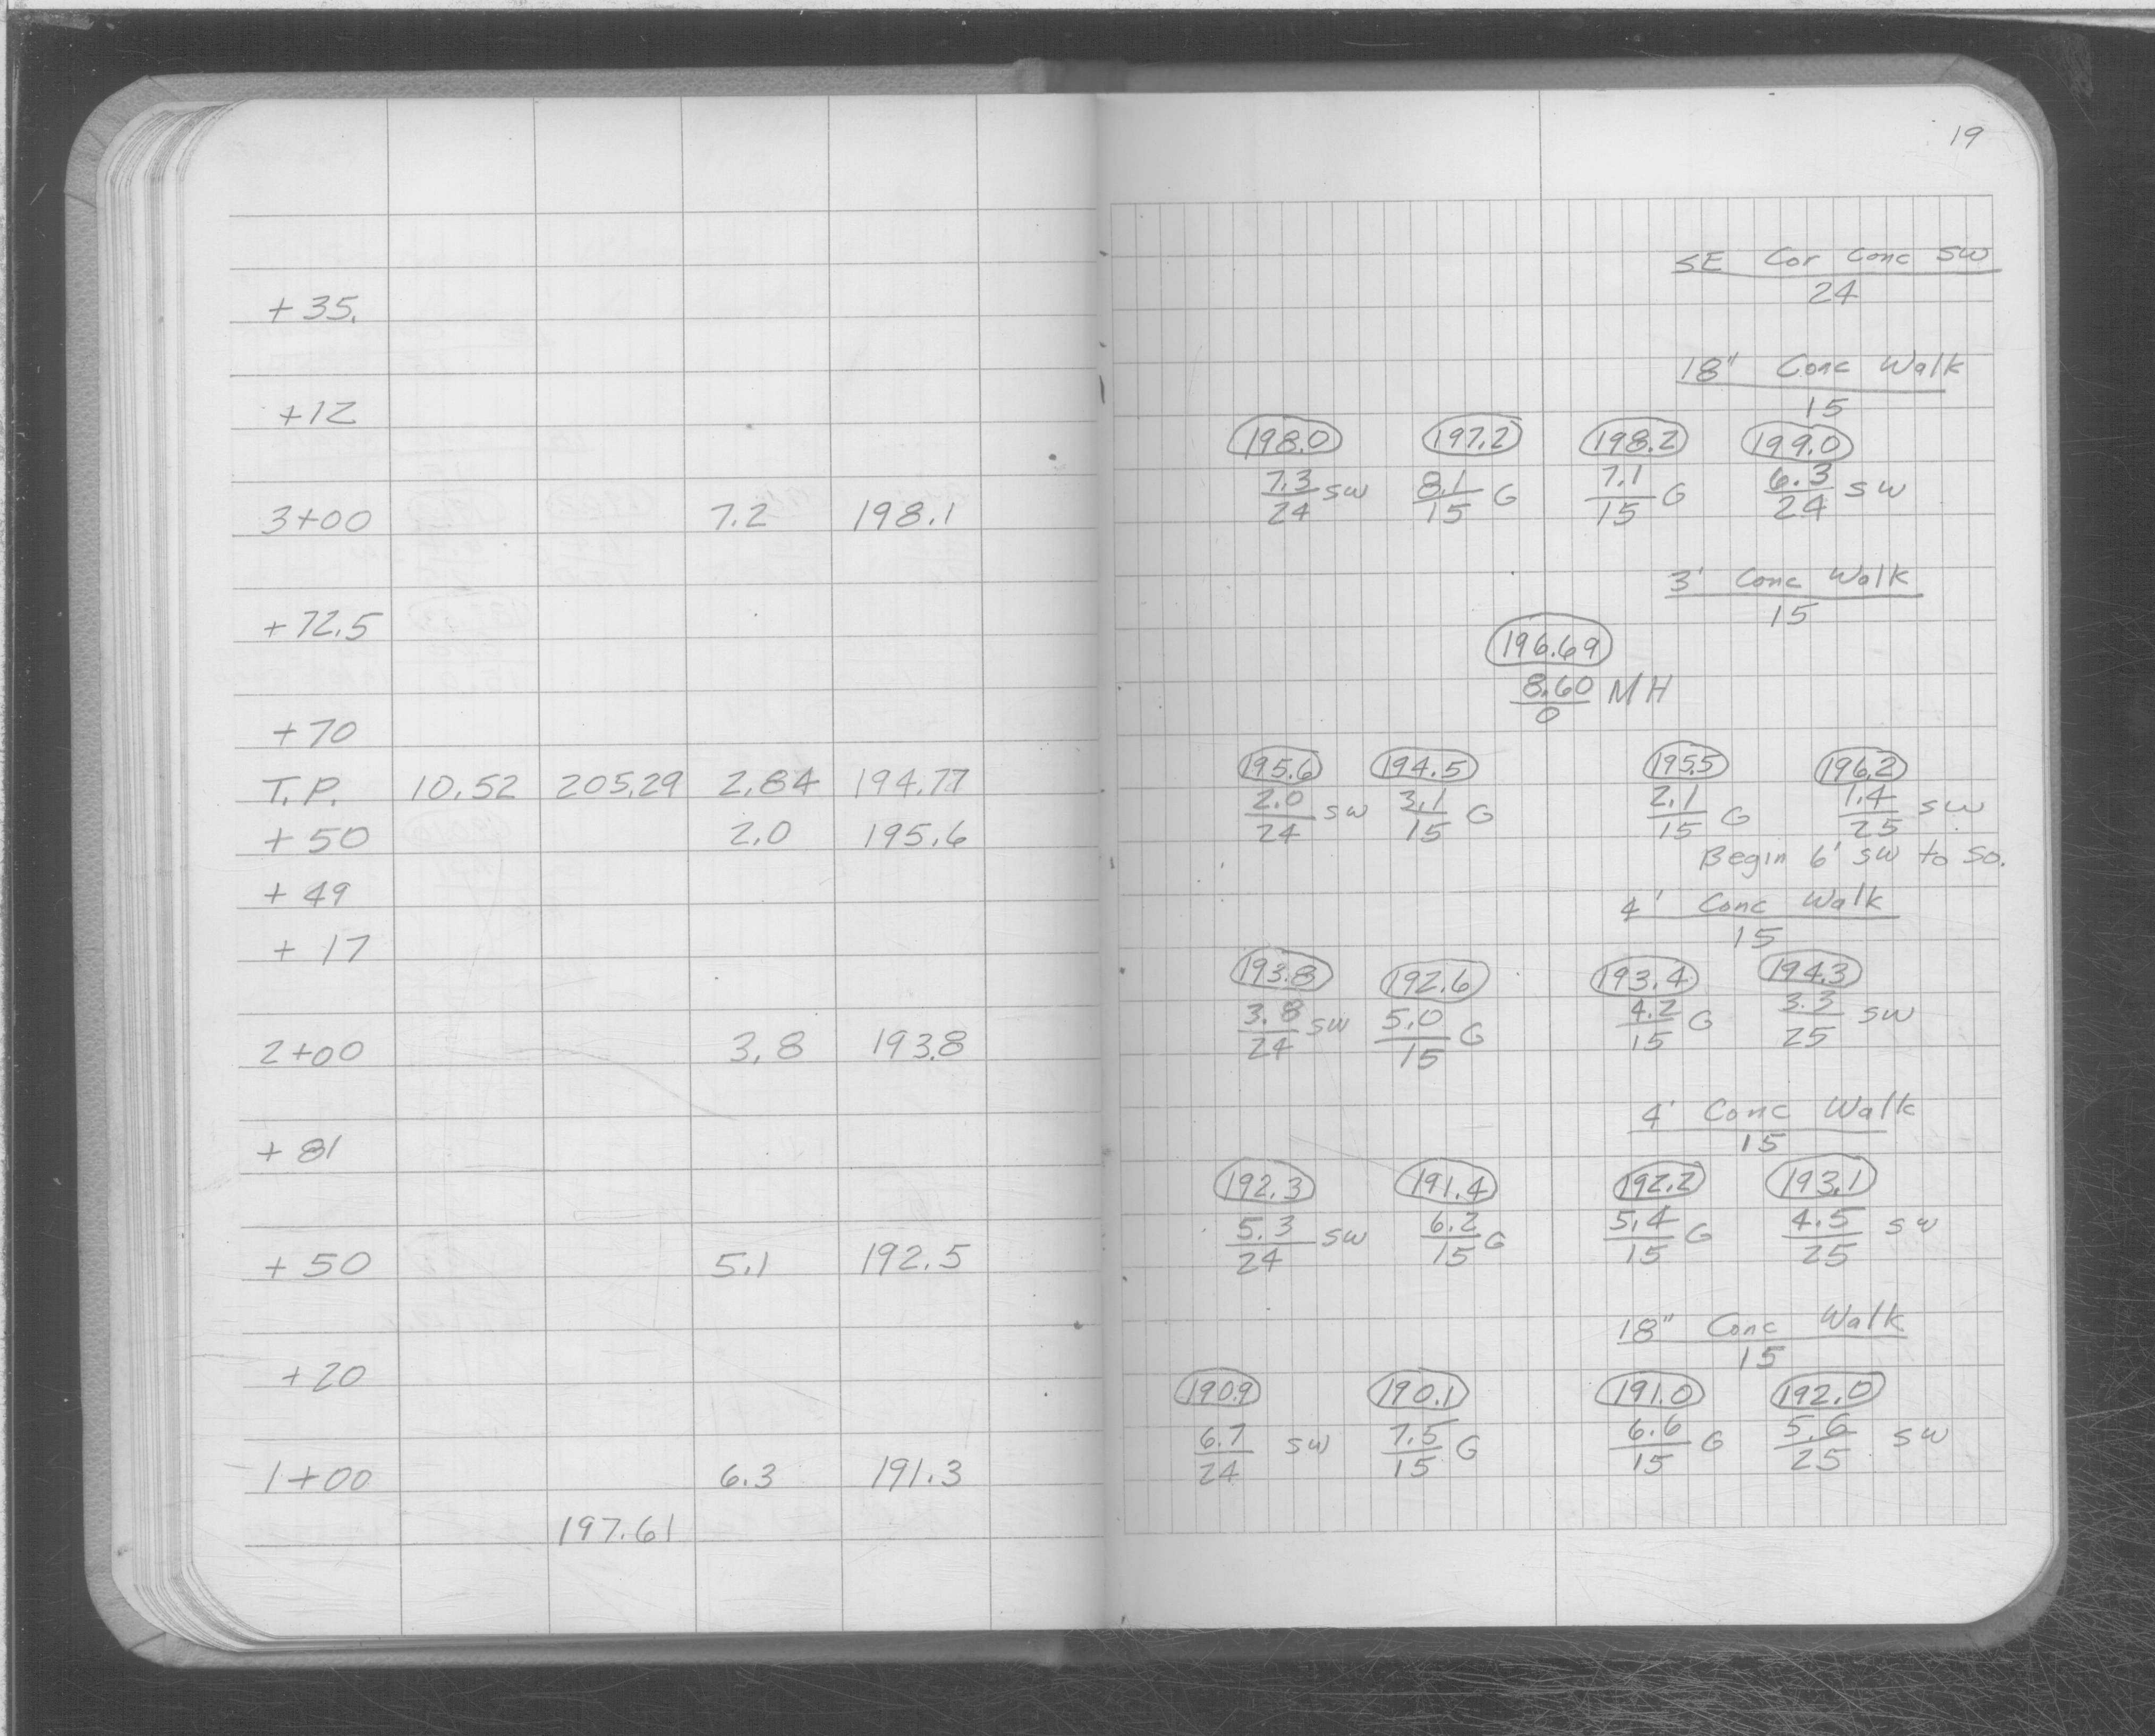 19
SE Cor Conc SW
24
+35.
18" Conc Walk
15
+12
198.0 197.2 198.2 199.0
7.3 SW 8.1 G 7.1 G 6.3 SW
24 15 15 24
3+00 7.2 198.1
3' Conc Walk
15
+72.5
196.69
8.60 MH
0
+70
195.6 194.5 195.5 196.2
T.P. 10.52 205.29 2.84 194.77
2.0 SW 3.1 G 2.1 G 1.4 SW
24 15 15 25
+50 2.0 195.6
Begin 6' SW to So.
+49
4' Conc Walk
15
+17
193.8 192.6 193.4 194.3
3.8 SW 5.0 G 4.2 G 3.3 SW
24 15 15 25
2+00 3.8 193.8
4' Conc Walk
15
+81
192.3 191.4 192.2 193.1
5.3 SW 6.2 G 5.4 G 4.5 SW
24 15 15 25
+50 5.1 192.5
18" Conc Walk
15
+20
190.9 190.1 191.0 192.0
6.7 SW 7.5 G 6.6 G 5.6 SW
24 15 15 25
1+00 6.3 191.3
197.61